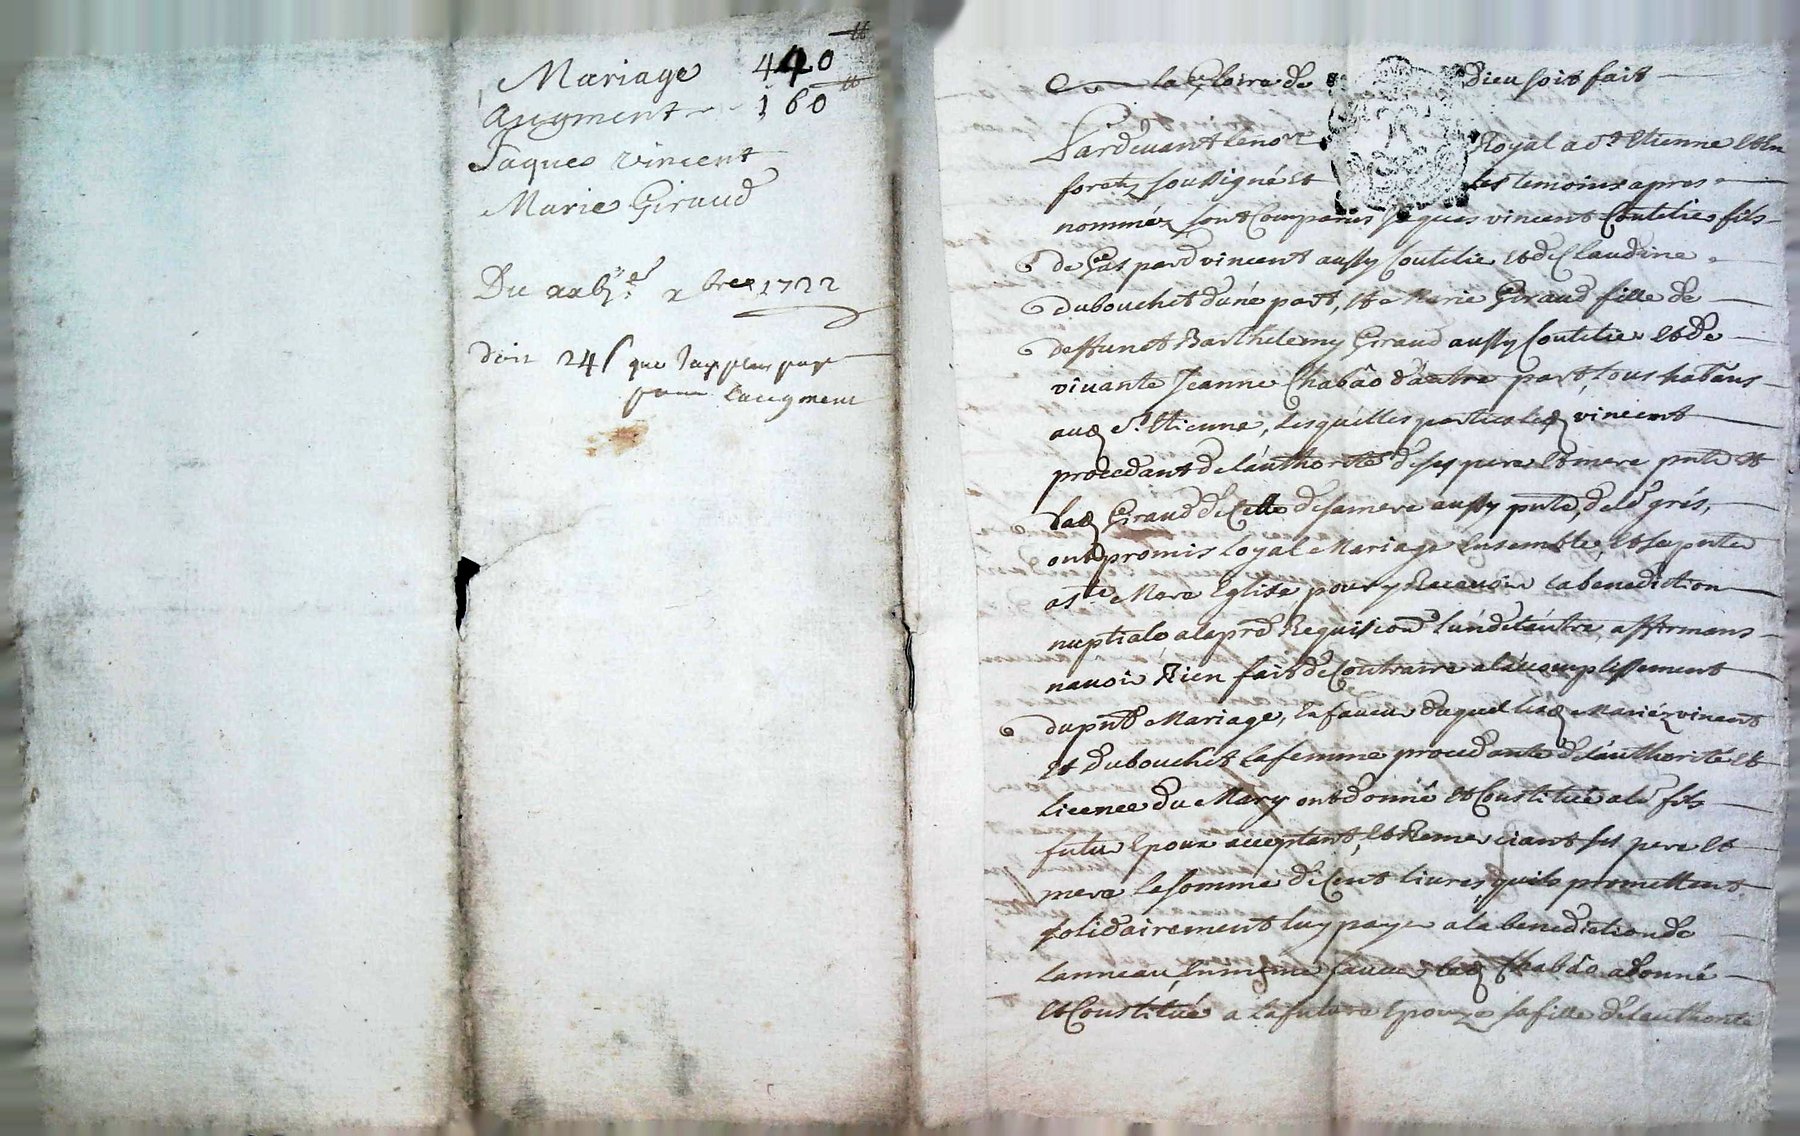 Mariage 440 tt
Augment 160 tt
Jaques Vincent
Marie Giraud
Du xxbj.e xbre 1722
doit 24 s que
pour Laugment
A la Gloire de Dieu soit fait
Pardevant le nore Royal a St Etienne et en
foretz soussigné et les temoins apres
nomméz sont Comparus Jaques vincent Coutelie fils
de Gaspard vincent aussy Coutelie et de Claudine
dubouchet dune part, et Marie Giraud fille de
deffunct Barthelemy Giraud aussy Coutelie et de
vivante Jeanne Chabâo d'autre part, tous habans
aud St Etienne, lesquelles parties led vincent
procedant de l'authorité de ses pere et mere pnts et
lad Giraud de Celle de sa mere aussy pnte, de le grés,
ont promis loyal Mariage Ensemble, et se pnter
a ste Mere Eglise pour y Recevoir la benediction
nuptiale, a la pre Requision l'un de l'autre, affirmans
navoir Rien fait de Contraire a l'accomplissement
du pnt Mariage, En faveur duquel lesd Mariéz vincent
et dubouchet sa femme procedante de l'authorité et
licence du Mary ont donné et Constitué a le fils
futur Epoux acceptant, et Remerciant ses pere et
mere la somme de Cent livres quils promettent
solidairement luy payer a la benediction de
lanneau, En meme faveur lad Chabâo a donné
et Constitué a la future Epouze sa fille de l'authorité